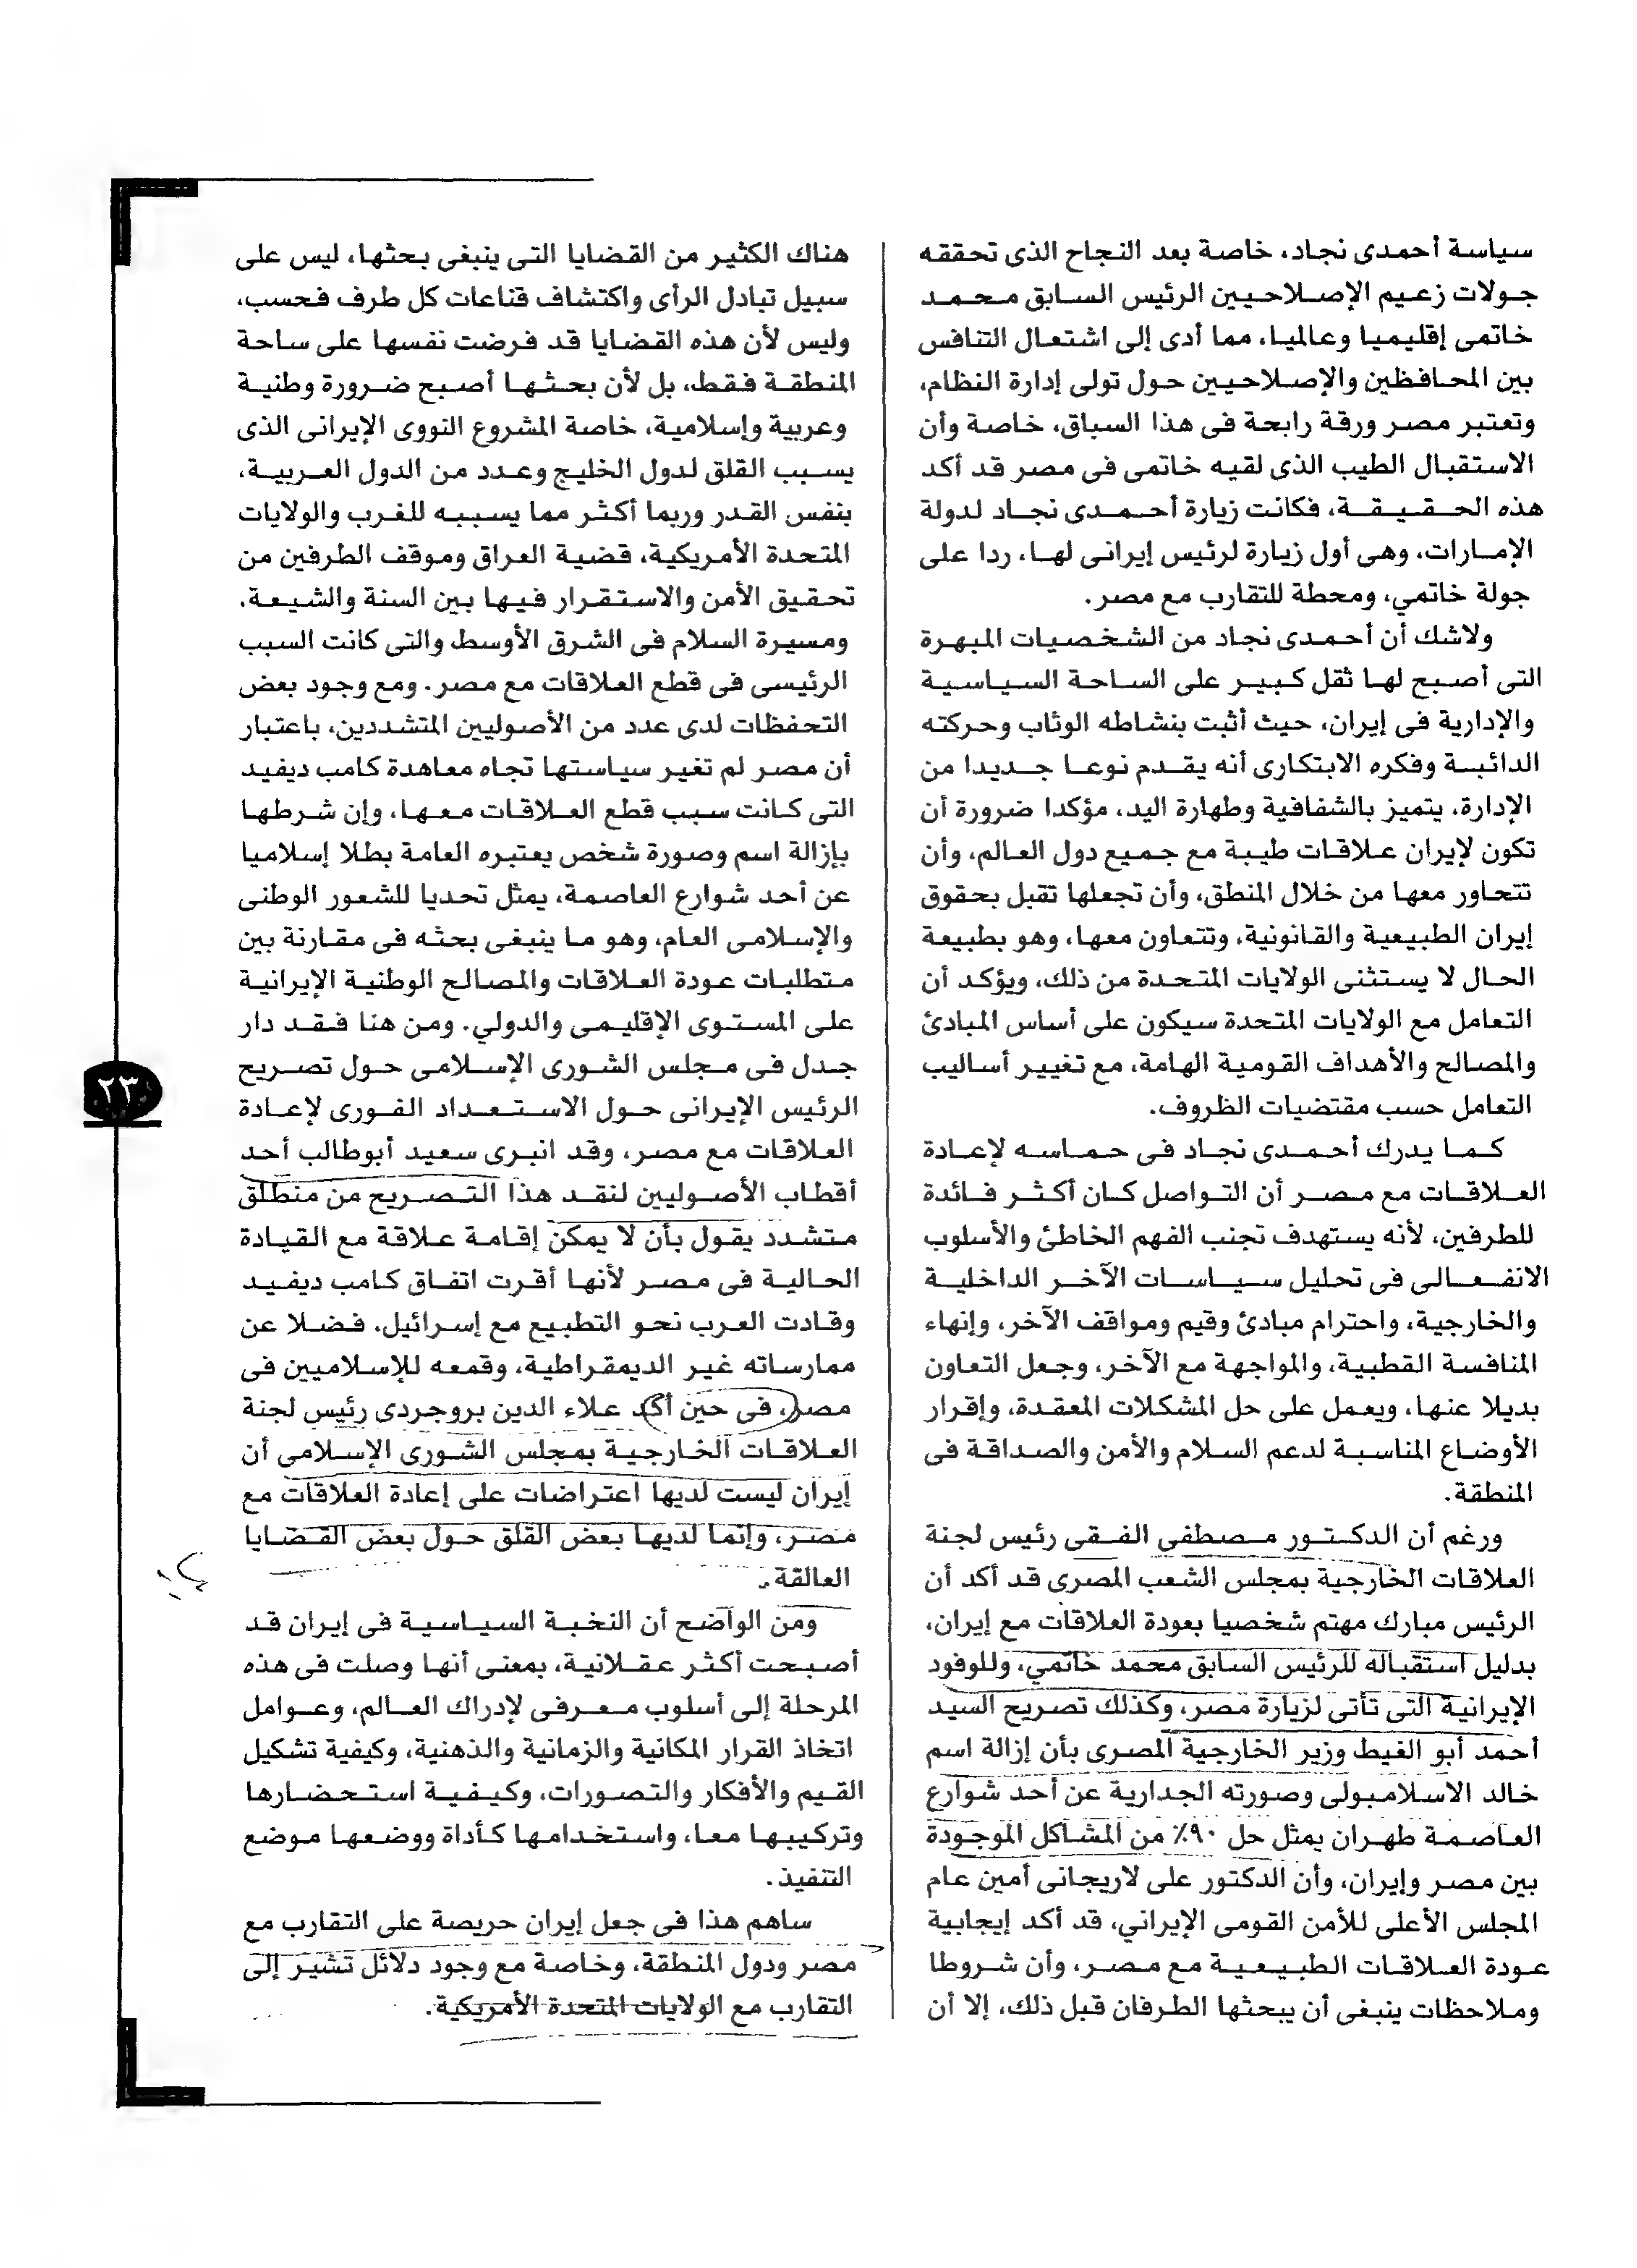 سياسة أحمدى نجاد، خاصة بعد النجاح الذى تحققه
جولات زعيم الإصلاحيين الرئيس السابق محمد
خاتمى إقليميا وعالميا، مما أدى إلى اشتعال التنافس
بين المحافظين والإصلاحيين حول تولى إدارة النظام،
وتعتبر مصر ورقة رابحة فى هذا السباق، خاصة وأن
الاستقبال الطيب الذى لقيه خاتمى فى مصر قد أكد
هذه الحقيقة، فكانت زيارة أحمدى نجاد لدولة
الإمارات، وهى أول زيارة لرئيس إيرانى لها، ردا على
جولة خاتمي، ومحطة للتقارب مع مصر.
ولاشك أن أحمدى نجاد من الشخصيات المبهرة
التى أصبح لها ثقل كبير على الساحة السياسية
والإدارية فى إيران، حيث أثبت بنشاطه الوثاب وحركته
الدائبة وفكره الابتكارى أنه يقدم نوعا جديدا من
الإدارة، يتميز بالشفافية وطهارة اليد، مؤكدا ضرورة أن
تكون لإيران علاقات طيبة مع جميع دول العالم، وأن
تتحاور معها من خلال المنطق، وأن تجعلها تقبل بحقوق
إيران الطبيعية والقانونية، وتتعاون معها، وهو بطبيعة
الحال لا يستثنى الولايات المتحدة من ذلك، ويؤكد أن
التعامل مع الولايات المتحدة سيكون على أساس المبادئ
والمصالح والأهداف القومية الهامة، مع تغيير أساليب
التعامل حسب مقتضيات الظروف.
كما يدرك أحمدى نجاد فى حماسه لإعادة
العلاقات مع مصر أن التواصل كان أكثر فائدة
للطرفين، لأنه يستهدف تجنب الفهم الخاطئ والأسلوب
الانفعالى فى تحليل سياسات الآخر الداخلية
والخارجية، واحترام مبادئ وقيم ومواقف الآخر، وإنهاء
المنافسة القطبية، والمواجهة مع الآخر، وجعل التعاون
بديلا عنها، ويعمل على حل المشكلات المعقدة، وإقرار
الأوضاع المناسبة لدعم السلام والأمن والصداقة فى
المنطقة.
ورغم أن الدكتور مصطفى الفقى رئيس لجنة
العلاقات الخارجية بمجلس الشعب المصرى قد أكد أن
الرئيس مبارك مهتم شخصيا بعودة العلاقات مع إيران،
بدليل استقباله للرئيس السابق محمد خاتمي، وللوفود
الإيرانية التى تأتى لزيارة مصر، وكذلك تصريح السيد
أحمد أبو الغيط وزير الخارجية المصرى بأن إزالة اسم
خالد الاسلامبولى وصورته الجدارية عن أحد شوارع
العاصمة طهران يمثل حل ٩٠٪ من المشاكل الموجودة
بين مصر وإيران، وأن الدكتور على لاريجانى أمين عام
المجلس الأعلى للأمن القومى الإيراني، قد أكد إيجابية
عودة العلاقات الطبيعية مع مصر، وأن شروطا
وملاحظات ينبغى أن يبحثها الطرفان قبل ذلك، إلا أن
هناك الكثير من القضايا التى ينبغى بحثها، ليس على
سبيل تبادل الرأى واكتشاف قناعات كل طرف فحسب،
وليس لأن هذه القضايا قد فرضت نفسها على ساحة
المنطقة فقط، بل لأن بحثها أصبح ضرورة وطنية
وعربية وإسلامية، خاصة المشروع النووى الإيرانى الذى
يسبب القلق لدول الخليج وعدد من الدول العربية،
بنفس القدر وربما أكثر مما يسببه للغرب والولايات
المتحدة الأمريكية، قضية العراق وموقف الطرفين من
تحقيق الأمن والاستقرار فيها بين السنة والشيعة.
ومسيرة السلام فى الشرق الأوسط والتى كانت السبب
الرئيسى فى قطع العلاقات مع مصر. ومع وجود بعض
التحفظات لدى عدد من الأصوليين المتشددين، باعتبار
أن مصر لم تغير سياستها تجاه معاهدة كامب ديفيد
التى كانت سبب قطع العلاقات معها، وإن شرطها
بإزالة اسم وصورة شخص يعتبره العامة بطلا إسلاميا
عن أحد شوارع العاصمة، يمثل تحديا للشعور الوطنى
والإسلامى العام، وهو ما ينبغى بحثه فى مقارنة بين
متطلبات عودة العلاقات والمصالح الوطنية الإيرانية
على المستوى الإقليمى والدولي. ومن هنا فقد دار
جدل فى مجلس الشورى الإسلامى حول تصريح
الرئيس الإيرانى حول الاستعداد الفورى لإعادة
العلاقات مع مصر، وقد انبرى سعيد أبوطالب أحد
أقطاب الأصوليين لنقد هذا التصريح من منطلق
متشدد يقول بأن لا يمكن إقامة علاقة مع القيادة
الحالية فى مصر لأنها أقرت اتفاق كامب ديفيد
وقادت العرب نحو التطبيع مع إسرائيل، فضلا عن
ممارساته غير الديمقراطية، وقمعه للإسلاميين فى
مصر، فى حين أكد علاء الدين بروجردى رئيس لجنة
العلاقات الخارجية بمجلس الشورى الإسلامى أن
إيران ليست لديها اعتراضات على إعادة العلاقات مع
مصر، وإنما لديها بعض القلق حول بعض القضايا
العالقة.
ومن الواضح أن النخبة السياسية فى إيران قد
أصبحت أكثر عقلانية، بمعنى أنها وصلت فى هذه
المرحلة إلى أسلوب معرفى لإدراك العالم، وعوامل
اتخاذ القرار المكانية والزمانية والذهنية، وكيفية تشكيل
القيم والأفكار والتصورات، وكيفية استحضارها
وتركيبها معا، واستخدامها كأداة ووضعها موضع
التنفيذ.
ساهم هذا فى جعل إيران حريصة على التقارب مع
مصر ودول المنطقة، وخاصة مع وجود دلائل تشير إلى
التقارب مع الولايات المتحدة الأمريكية.
٢٣